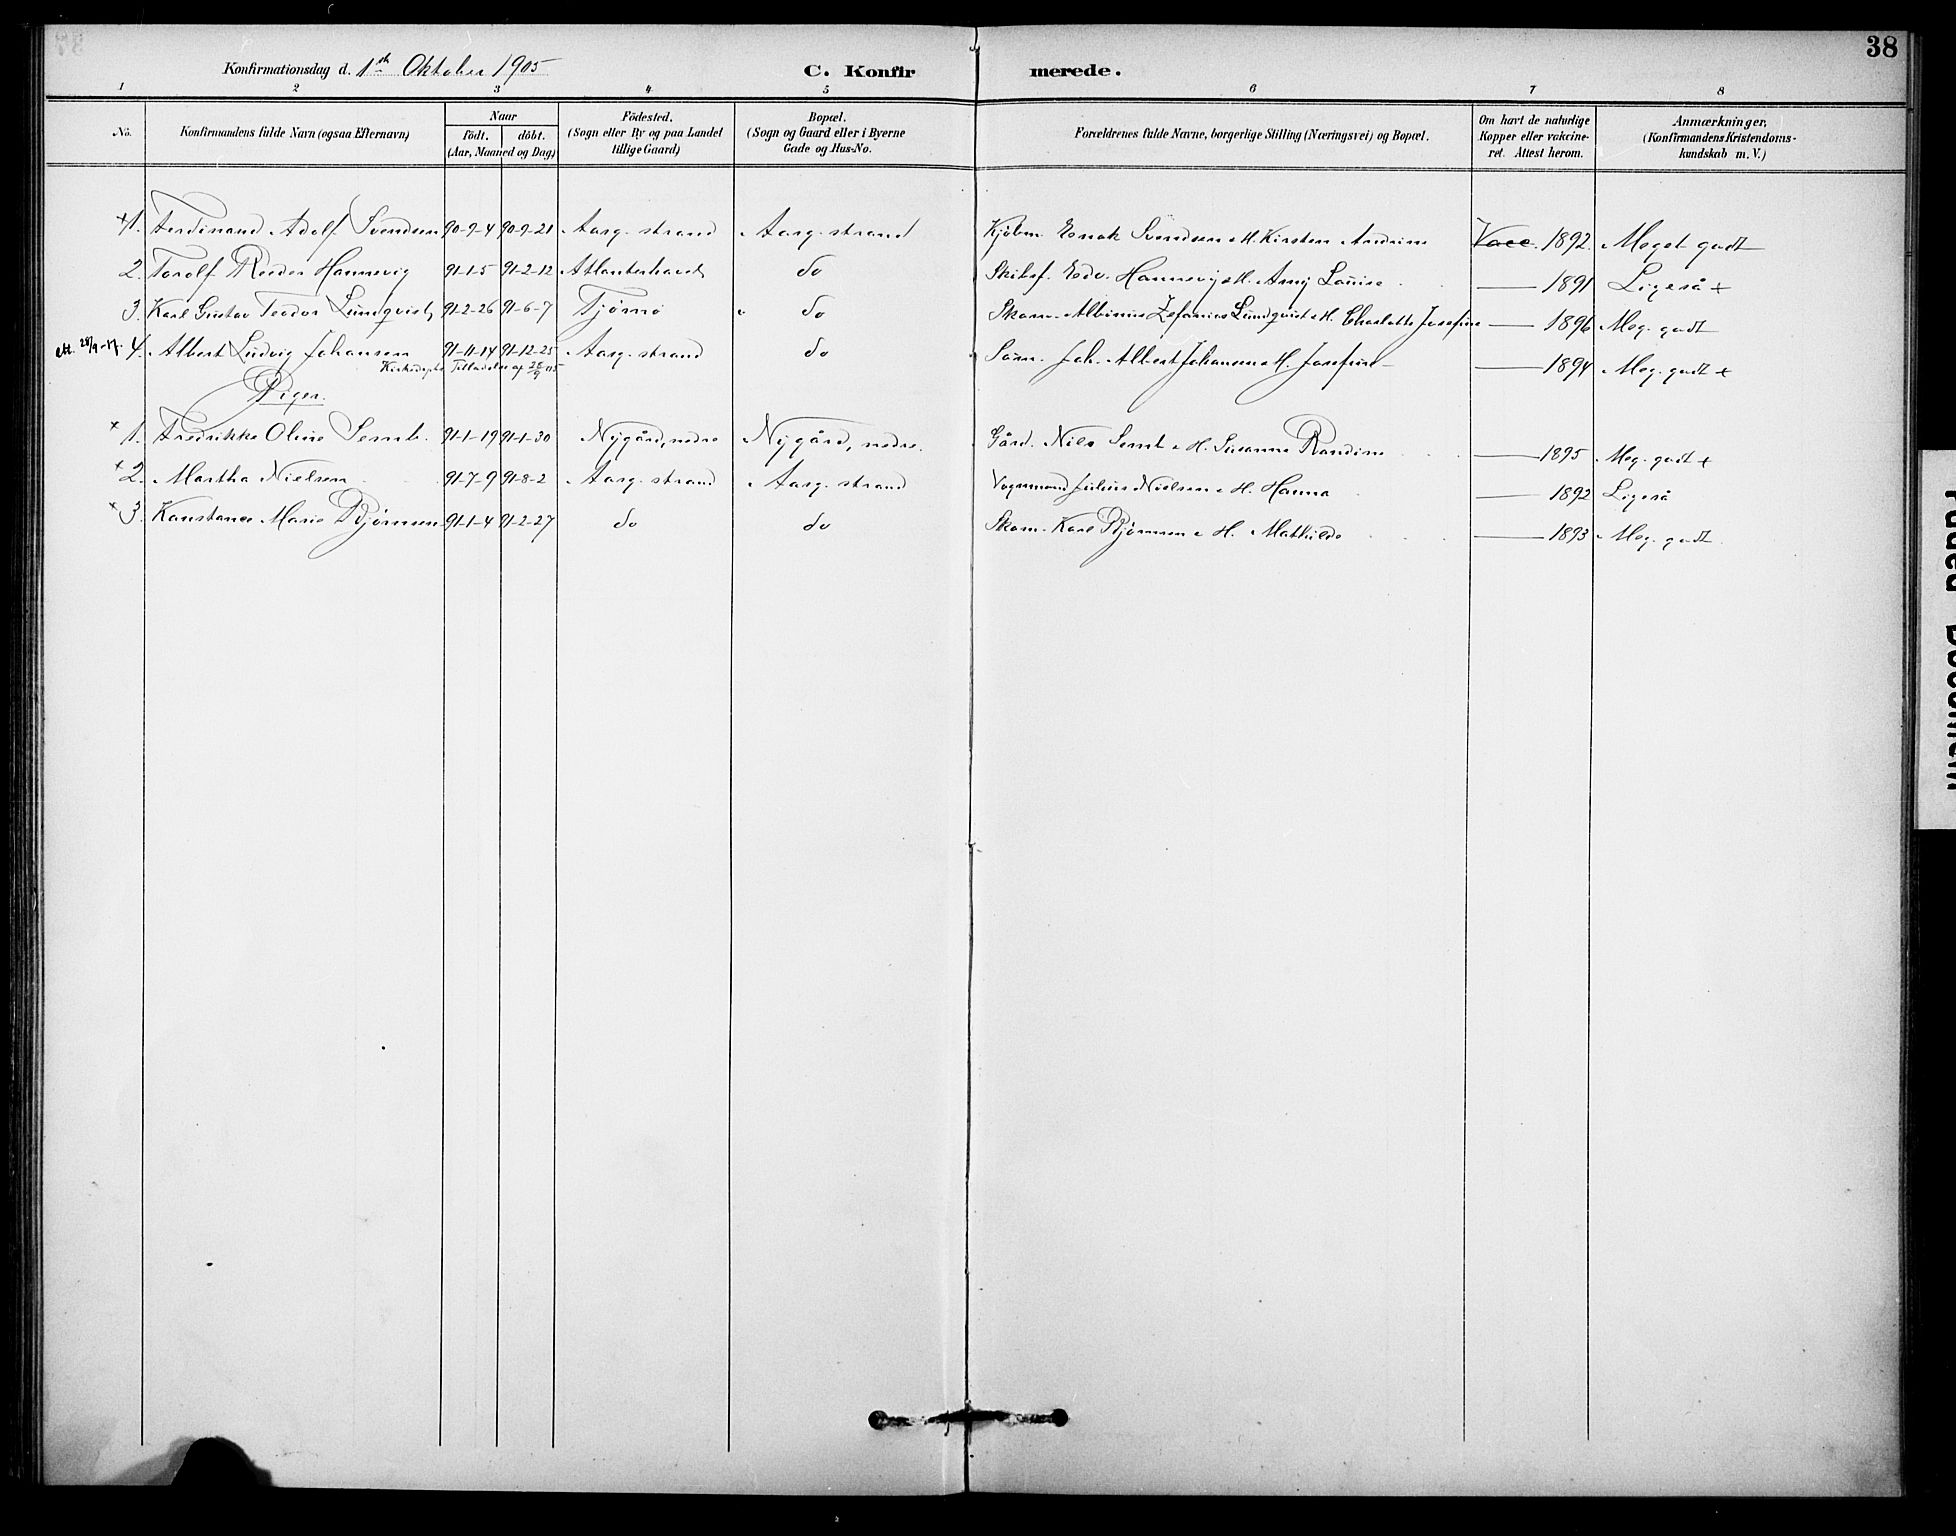 38
Konfirmationsdag d. 1ste Oktober 1905 C. Konfirmerede.
1 2 3 4 5 6 7 8
No. Konfirmandens fulde Navn (ogsaa Efternavn) Naar födt. döbt. (Aar, Maaned og Dag) Födested. (Sogn eller By og paa Landet tillige Gaard) Bopæl. (Sogn og Gaard eller i Byerne Gade og Hus-No. Forældrenes fulde Navne, borgerlige Stilling (Næringsvei) og Bopæl. Om havt de naturlige Kopper eller vakcineret. Attest herom. Anmærkninger, (Konfirmandens Kristendomskundskab m. V.)
+1. Ferdinand Adolf Svendsen 90-9-4 90-9-21 Aasg.strand Aasg.strand Kjøbm. Enok Svendsen & H. Kirsten Andrine Vacc. 1892 Meget godt
2. Torolf Reeder Hannevig 91-1-5 91-2-12 Atlanterhavet do Skibsf. Edv. Hannevig & H. Amy Louise — 1891 Ligeså +
3. Karl Gustav Teodor Lundqvist 91-2-26 91-6-7 Tjømø do Skom. Albinus Zefanias Lundqvist & H. Charlotte Josefine — 1896 Meg. godt
att. 28/9-17. 4. Albert Ludvig Johansen 91-11-14 91-12-25 Aasg.strand do Søm. Joh. Albert Johansen & H. Josefine — 1894 Meg. godt +
Tilladelse af 28/9 05
Piger.
+ 1. Fredrikke Oline Semb. 91-1-19 91-1-30 Nygård, nedre Nygård, nedre. Gård. Nils Semb & H. Susanne Randine — 1895 Meg. godt +
+2. Martha Nielsen 91-7-9 91-8-2 Aasg.strand Aasg.strand Vognmand Julius Nielsen & H. Hanna — 1892 Ligeså
+3. Konstance Marie Bjørnsen 91-1-4 91-2-27 do do Skom. Karl Bjørnsen & H. Mathilde — 1893 Meg. godt